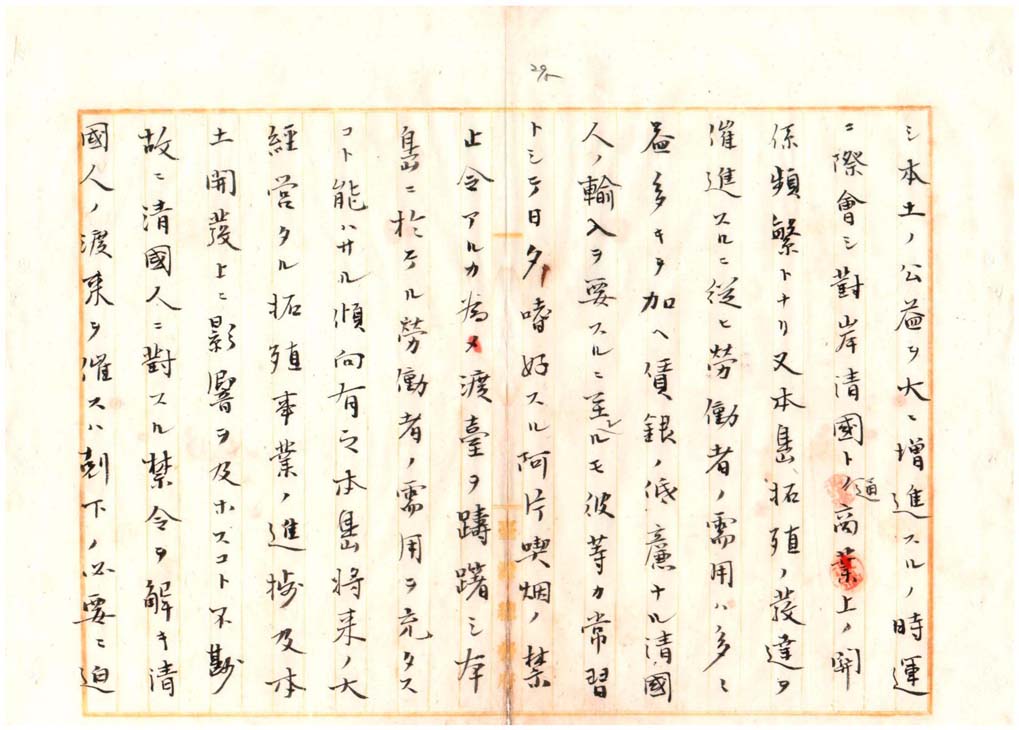 シ本土ノ公益ヲ大ニ増進スルノ時運
ニ際會シ對岸清國トノ通商業上ノ関
係頻繁トナリ又本島、拓殖ノ發達ヲ
催進スルニ從ヒ勞働者ノ需用ハ多々
益多キヲ加ヘ賃銀ノ低廉ナル清國
人ノ輸入ヲ要スルニ至ルモ彼等カ常習
トシテ日夕嗜好スル阿片喫烟ノ禁
止令アルカ為メ渡臺ヲ躊躇シ本
島ニ於テル勞働者ノ需用ヲ充タス
コト能ハサル傾向有之本島将来ノ大
經営タル拓殖事業ノ進捗及本
土開發上ニ影響ヲ及ホスコト不尠
故ニ清國人ニ對スル禁令ヲ解キ清
國人ノ渡来ヲ催スハ刻下ノ必要ニ迫